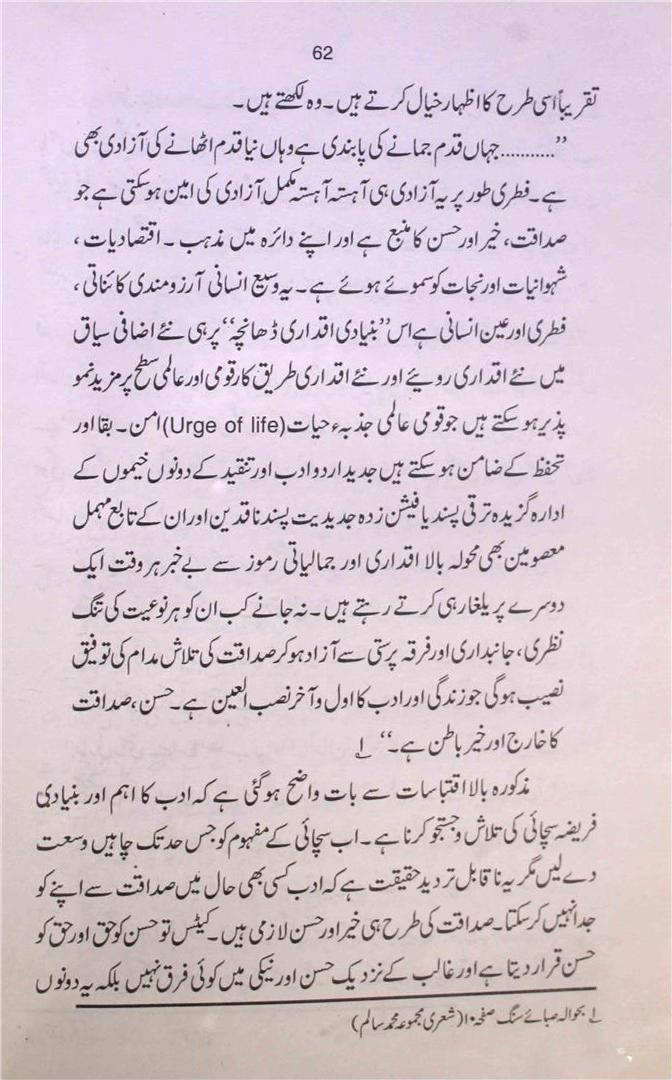 62
تقریباً اسی طرح کا اظہار خیال کرتے ہیں۔ وہ لکھتے ہیں۔
”..........جہاں قدم جمانے کی پابندی ہے وہاں نیا قدم اٹھانے کی آزادی بھی
ہے۔ فطری طور پر یہ آزادی ہی آہستہ آہستہ مکمل آزادی کی امین ہوسکتی ہے جو
صداقت، خیر اور حسن کا منبع ہے اور اپنے دائرہ میں مذہب ۔ اقتصادیات ،
شہوانیات اور نجات کو سموئے ہوئے ہے۔ یہ وسیع انسانی آرزومندی کائناتی ،
فطری اور عین انسانی ہے اس ”بنیادی اقداری ڈھانچہ“ پر ہی نئے اضافی سیاق
میں نئے اقداری رویئے اور نئے اقداری طریق کار قومی اور عالمی سطح پر مزید نمو
پذیر ہوسکتے ہیں جو قومی عالمی جذبہء حیات (Urge of life) امن ۔ بقا اور
تحفظ کے ضامن ہوسکتے ہیں جدید اردو ادب اور تنقید کے دونوں خیموں کے
ادارہ گزیدہ ترقی پسند یا فیشن زدہ جدیدیت پسند ناقدین اور ان کے تابع مہمل
معصومین بھی محولہ بالا اقداری اور جمالیاتی رموز سے بے خبر ہر وقت ایک
دوسرے پر یلغار ہی کرتے رہتے ہیں۔ نہ جانے کب ان کو ہر نوعیت کی تنگ
نظری، جانبداری اور فرقہ پرستی سے آزاد ہوکر صداقت کی تلاش مدام کی توفیق
نصیب ہوگی جو زندگی اور ادب کا اول و آخر نصب العین ہے۔ حسن، صداقت
کا خارج اور خیر باطن ہے۔“ ۱
مذکورہ بالا اقتباسات سے بات واضح ہوگئی ہے کہ ادب کا اہم اور بنیادی
فریضہ سچائی کی تلاش و جستجو کرنا ہے۔ اب سچائی کے مفہوم کو جس حد تک چاہیں وسعت
دے لیں مگر یہ ناقابل تردید حقیقت ہے کہ ادب کسی بھی حال میں صداقت سے اپنے کو
جدا نہیں کرسکتا۔ صداقت کی طرح ہی خیر اور حسن لازمی ہیں۔ کیٹس تو حسن کو حق اور حق کو
حسن قرار دیتا ہے اور غالب کے نزدیک حسن اور نیکی میں کوئی فرق نہیں بلکہ یہ دونوں
۱ بحوالہ صبائے سنگ صفحہ ۱۰ (شعری مجموعہ محمد سالم)